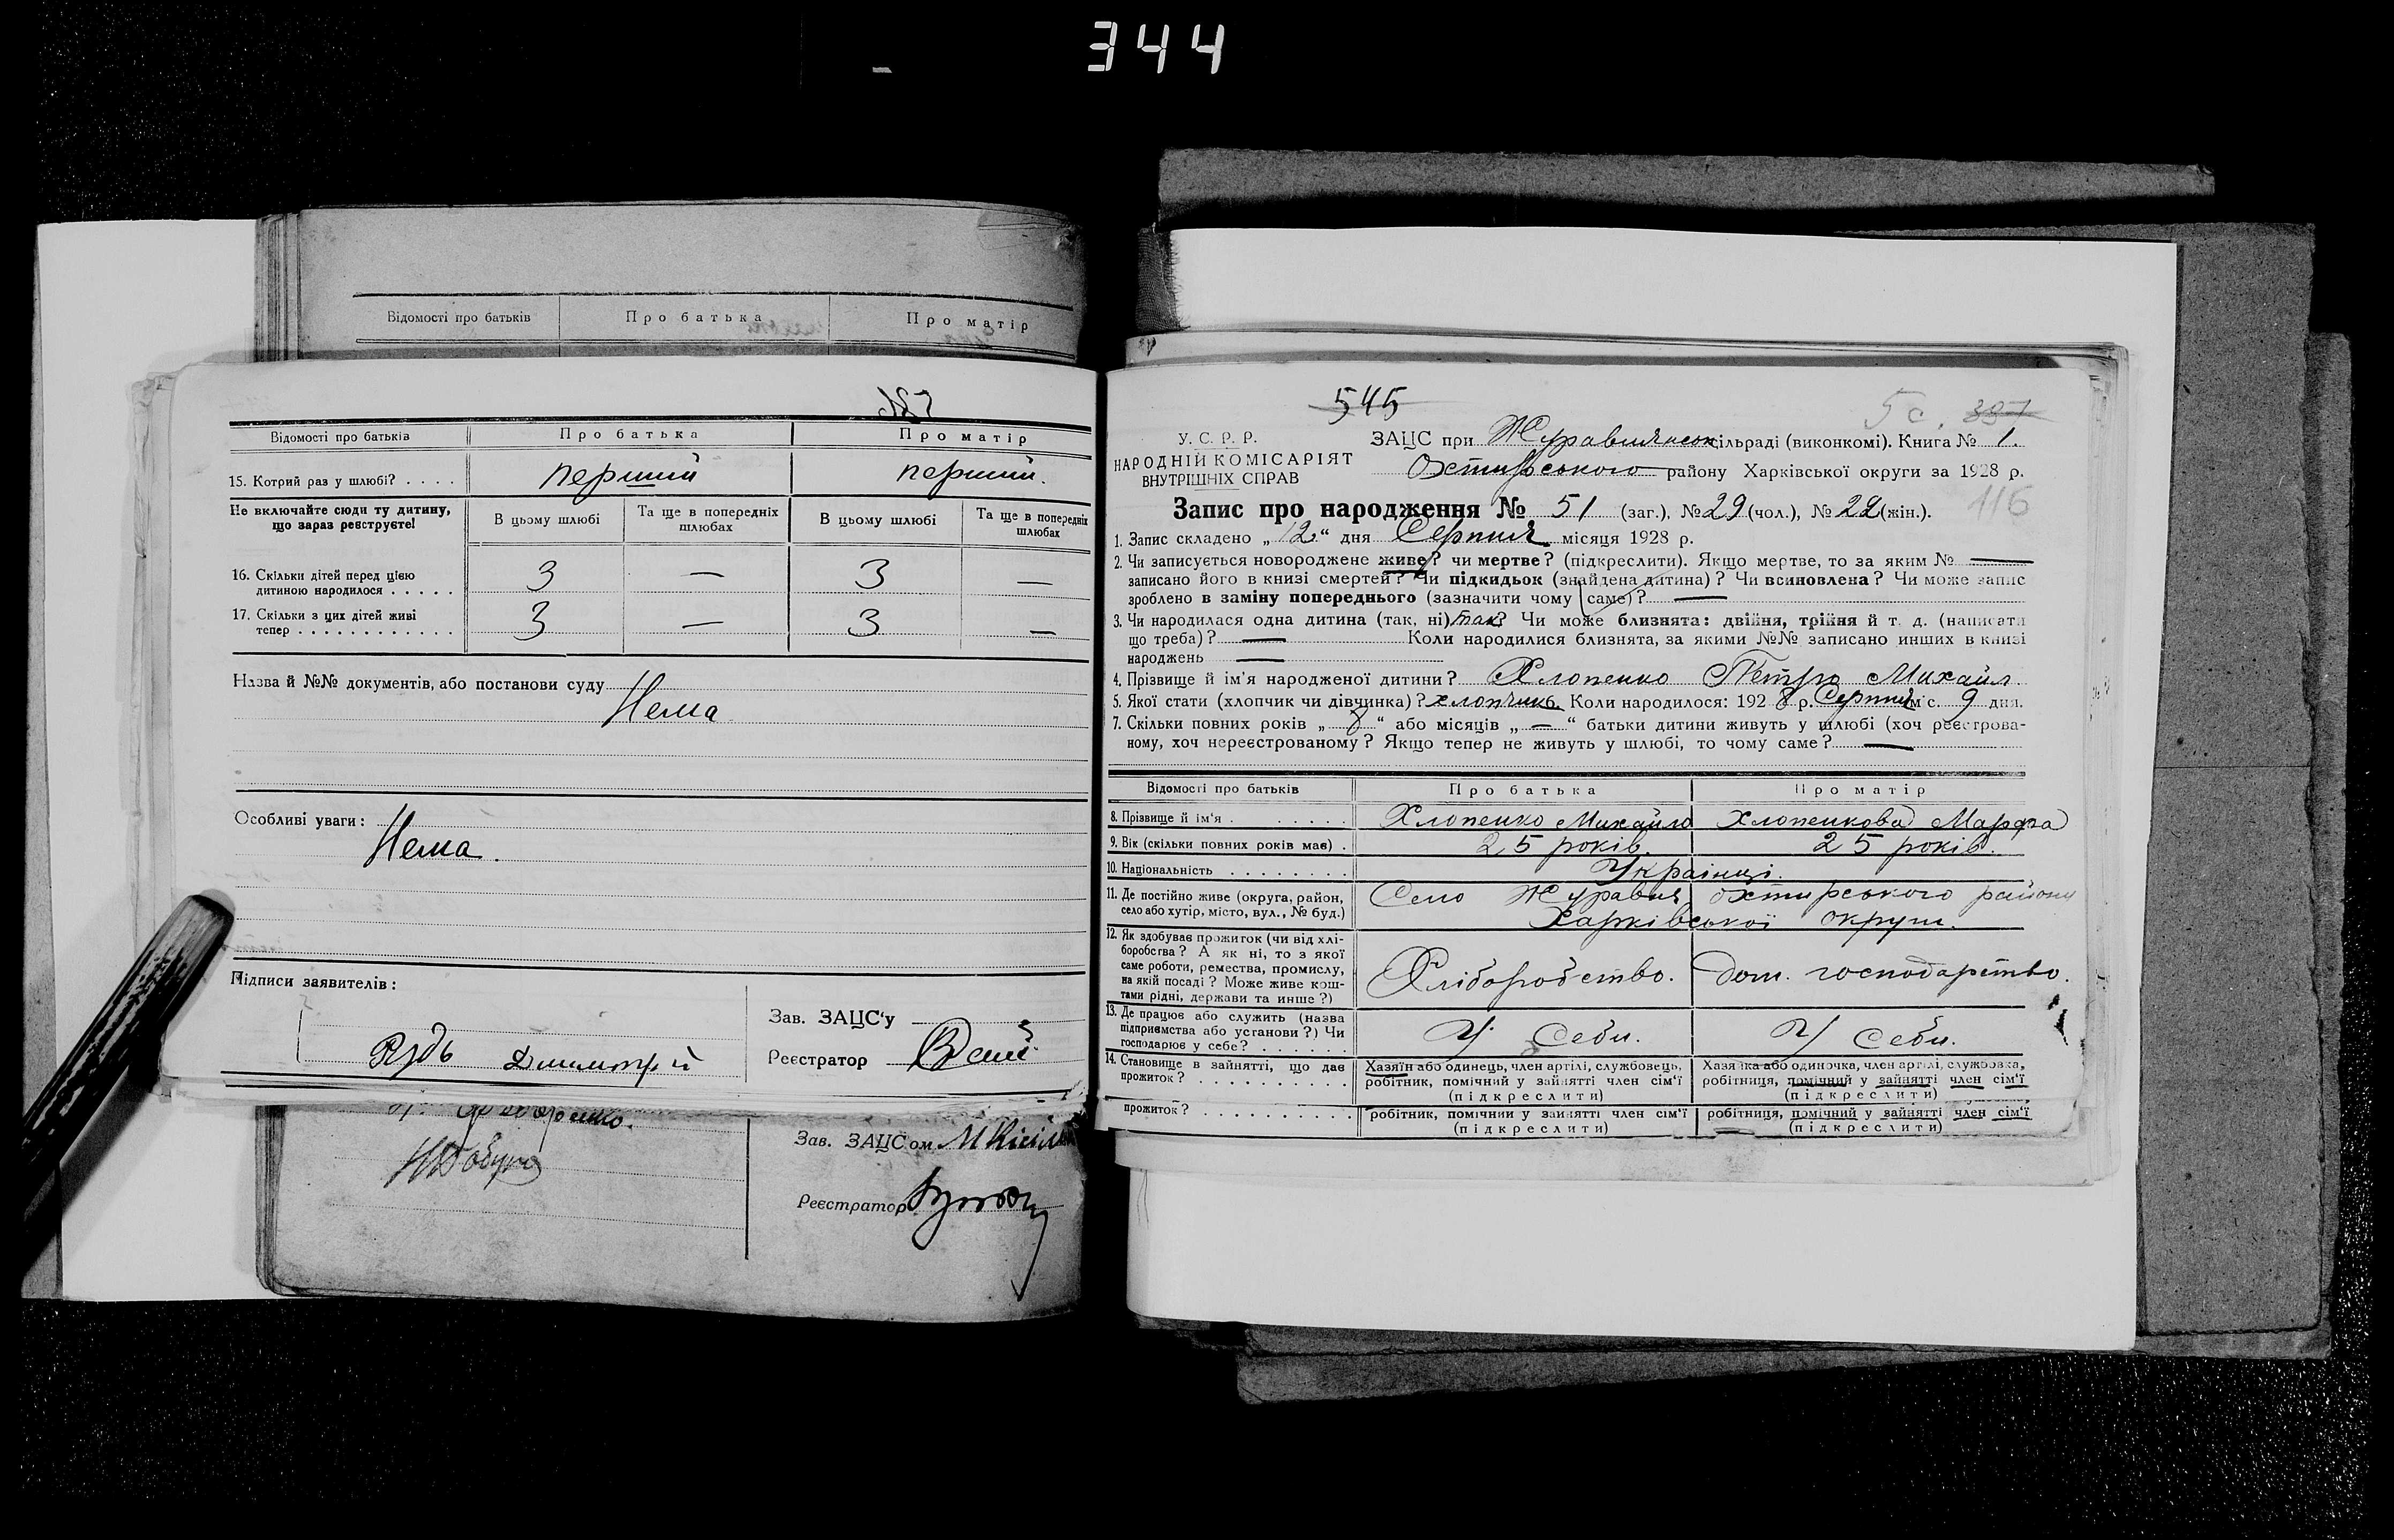 344
Відомості про батьків Про батька Про матір
Відомості про батьків Про батька Про матір
15. Котрий раз у шлюбі? . . . . перший перший.
Не включайте сюди ту дитину, що зараз реєструєте!
В цьому шлюбі Та ще в попередніх шлюбах В цьому шлюбі Та ще в попередніх шлюбах
16. Скільки дітей перед цією
дитиною народилося . . . . . 3 — 3 —
17. Скільки з цих дітей живі
тепер . . . . . . . . . . . . 3 — 3 —
Назва й №№ документів, або постанови суду
Нема
Особливі уваги:
Нема.
Підписи заявителів:
Зав. ЗАЦС'у
Рудь Дмимтрій Реєстратор
Зав. ЗАЦС ом
Реєстратор
545
5с. 397
У. С. Р. Р.
НАРОДНІЙ КОМІСАРІЯТ
ВНУТРІШНІХ СПРАВ
ЗАЦС при Журавлянськ сільраді (виконкомі). Книга № 1.
Охтирського району Харківської округи за 1928 р.
116
Запис про народження № 51 (заг.), № 29 (чол.), № 22 (жін.).
1. Запис складено „12“ дня Серпня місяця 1928 р.
2. Чи записується новороджене живе? чи мертве? (підкреслити). Якщо мертве, то за яким № —
записано його в книзі смертей? Чи підкидьок (знайдена дитина)? Чи всиновлена? Чи може запис
зроблено в заміну попереднього (зазначити чому саме)? —
3. Чи народилася одна дитина (так, ні) так? Чи може близнята: двійня, трійня й т. д. (написати
що треба)? — Коли народилися близнята, за якими №№ записано инших в книзі
народжень —
4. Прізвище й ім'я народженої дитини? Хлопенко Петро Михайл
5. Якої стати (хлопчик чи дівчинка)? хлопчик. Коли народилося: 1928 р. Серпня міс. 9 дня.
7. Скільки повних років „8“ або місяців „—“ батьки дитини живуть у шлюбі (хоч реєстрова-
ному, хоч нереєстрованому? Якщо тепер не живуть у шлюбі, то чому саме? —
Відомості про батьків Про батька Про матір
8. Прізвище й ім'я . . . . . . Хлопенко Михайло Хлопенкова Марфа
9. Вік (скільки повних років має) . 25 років. 25 років.
10. Національність . . . . . . . . Українці.
11. Де постійно живе (округа, район,
село або хутір, місто, вул., № буд.)
Село Журавля охтирського району
Харківської округи.
12. Як здобуває прожиток (чи від хлі-
боробства? А як ні, то з якої
саме роботи, ремества, промислу,
на якій посаді? Може живе кош-
тами рідні, держави та инше?)
Хліборобство. Дом. господарство.
13. Де працює або служить (назва
підприємства або установи?) Чи
господарює у себе? . . . . . .
У Себи. У Себи.
14. Становище в зайнятті, що дає
прожиток? . . . . . . . . . .
Хазяїн або одинець, член артілі, службовець,
робітник, помічний у зайнятті член сім'ї
(підкреслити)
Хазяїка або одиночка, член артілі, службовка,
робітниця, помічний у зайнятті член сім'ї
(підкреслити)
прожиток? . . . . . . . . . . робітник, помічний у зайнятті член сім'ї робітниця, помічний у зайнятті член сім'ї
(підкреслити) (підкреслити)